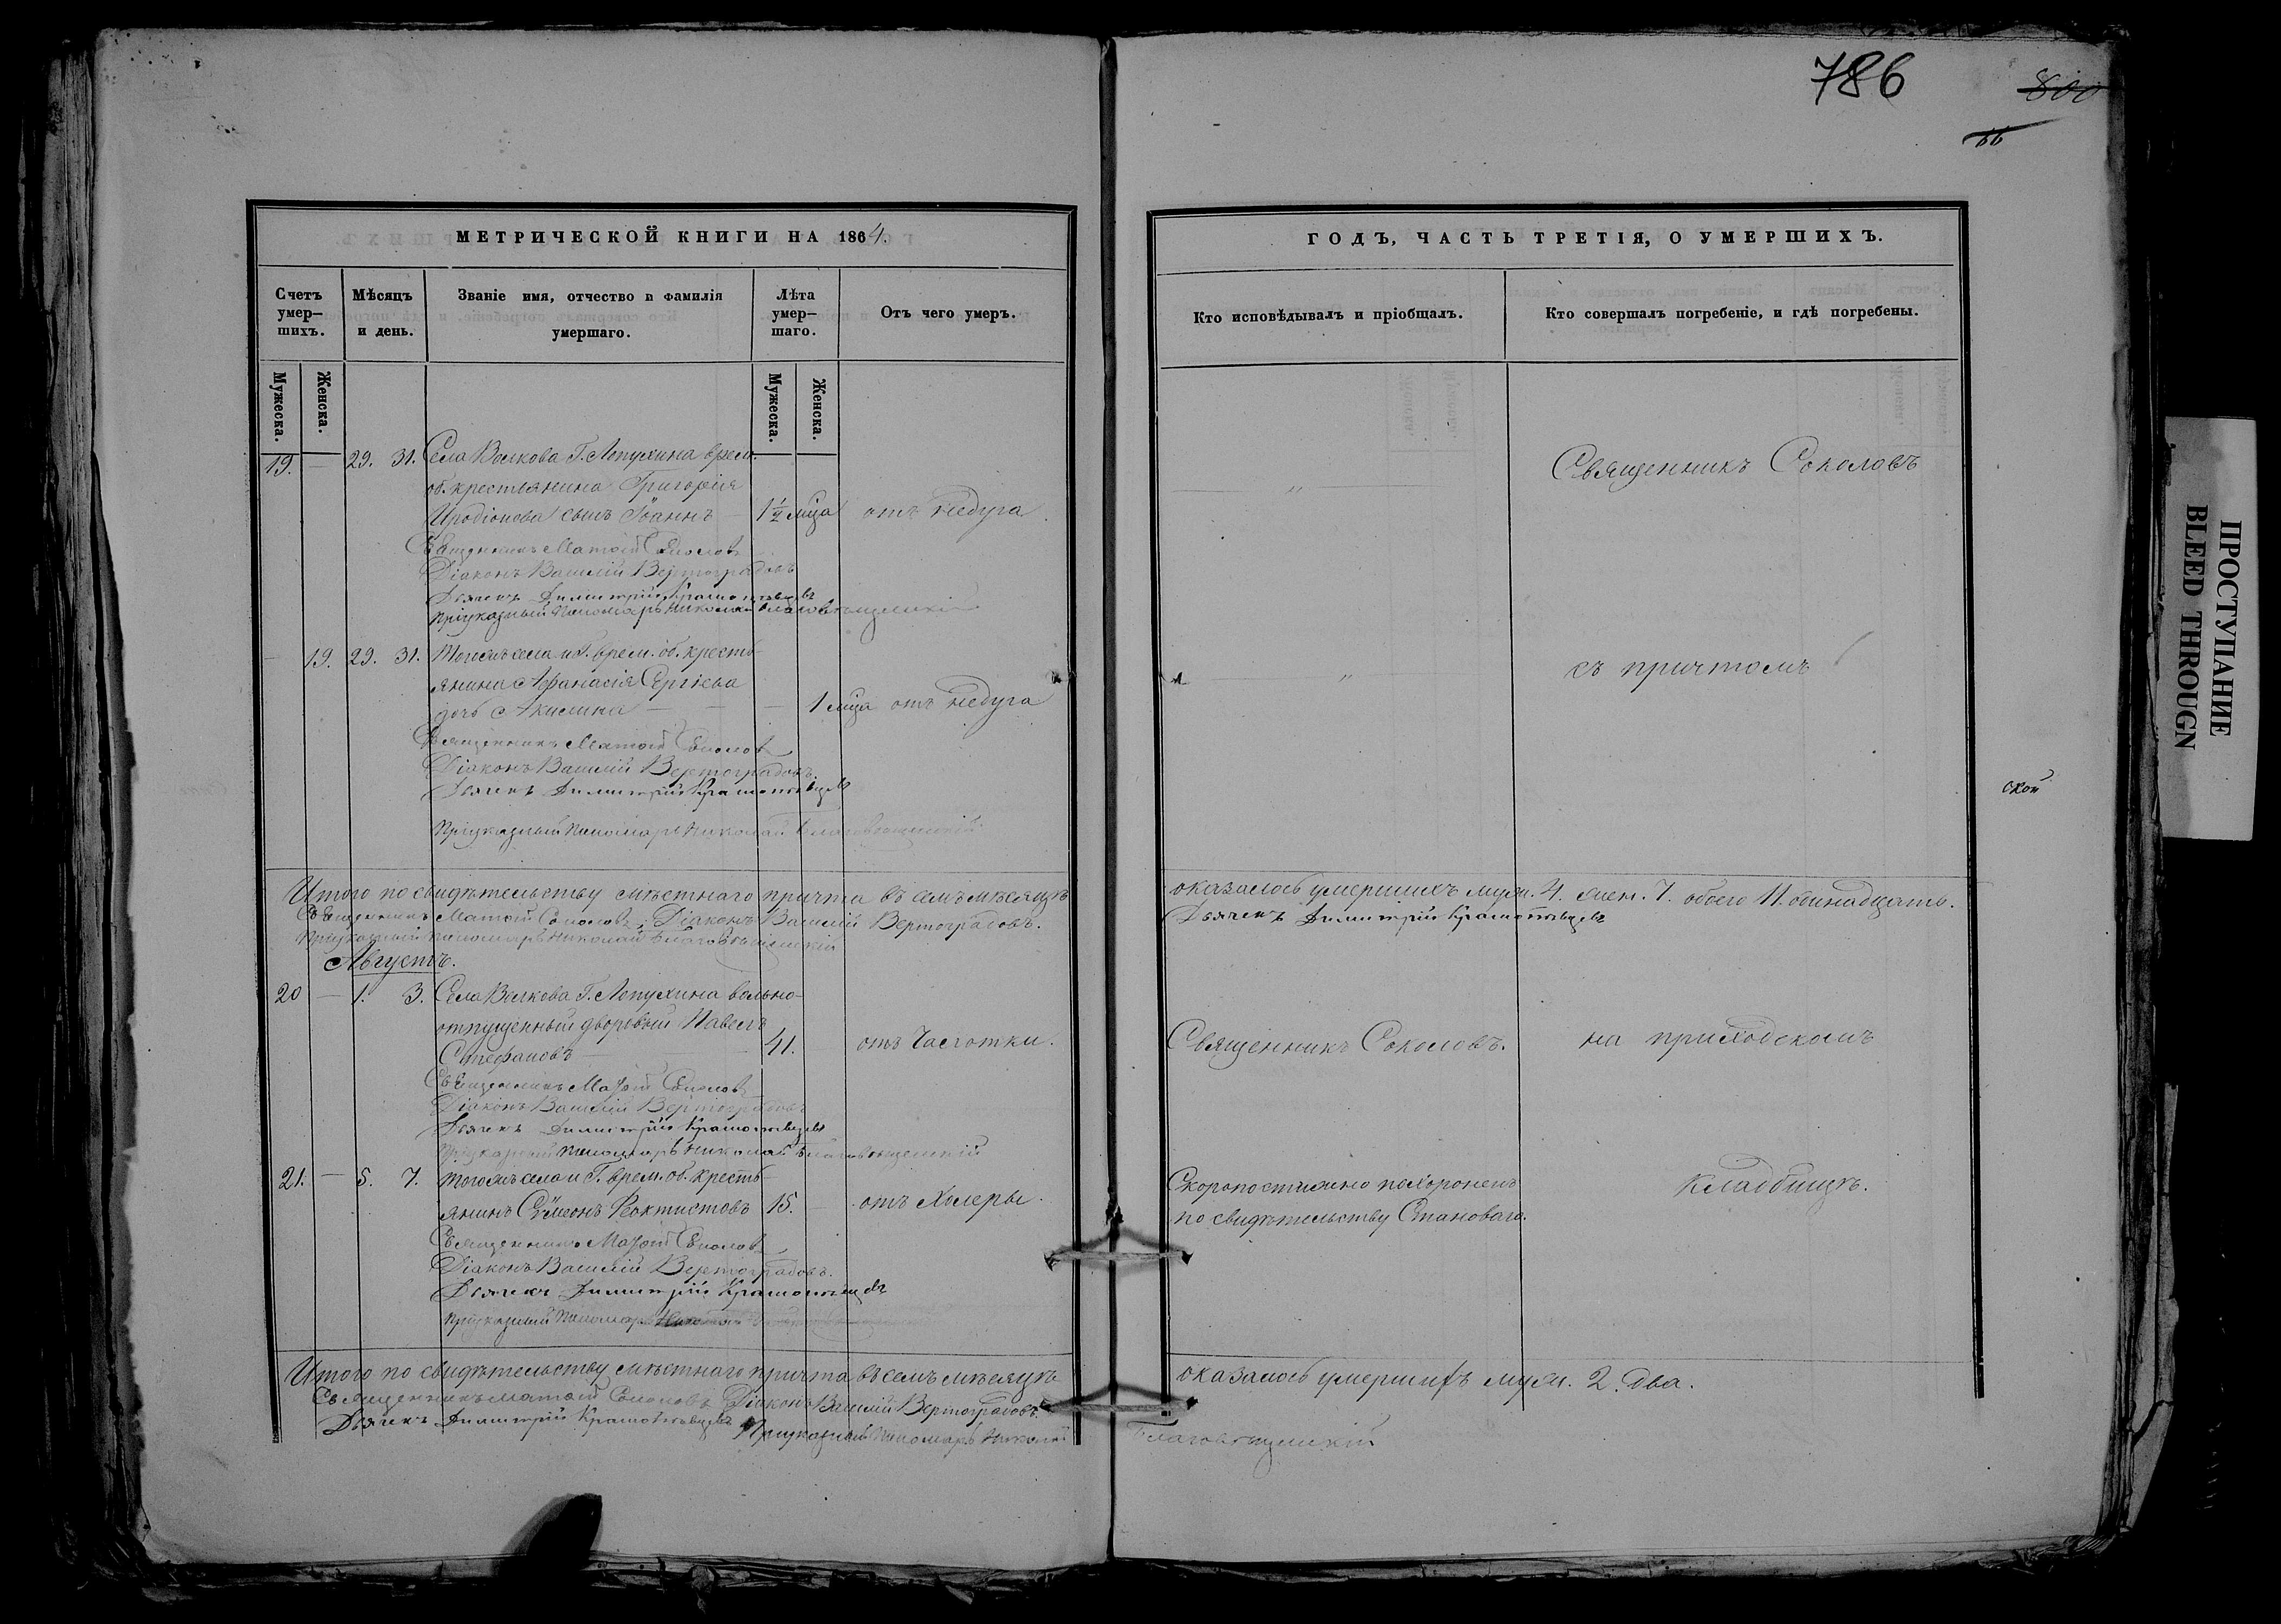 786
800
66
МЕТРИЧЕСКОЙ КНИГИ НА 1864.
Счетъ умер-шихъ.
Мѣсяцъ и день.
Званіе имя, отчество и фамилія умершаго.
Лѣта умер-шаго.
Отъ чего умеръ.
Мужеска.
Женска.
Мужеска.
Женска.
19. — 29. 31. Села Волкова Г. Лопухина врем.
об. крестьянина Григорія
Иродіонова сынъ Іоаннъ — 1½ мца отъ недуга
Священникъ Матвій Соколовъ
Діаконъ Василій Вертоградовъ
Дьячекъ Димитрій
Приуказный Пономарь Николай Благовѣщенскій
— 19. 29. 31. Тогожъ села и Г. врем. об. кресть-
янина Афанасія Сергѣева
дочь Акилина — — — 1 мца отъ недуга
Священникъ Матвій Соколовъ
Діаконъ Василій Вертоградовъ.
Дьячекъ Димитрій
Приуказный Пономарь Николай Благовѣщенскій
Итого по свидѣтельству мѣстнаго причта въ семъ мѣсяцѣ
Священникъ Матвій Соколовъ, Діаконъ Василій Вертоградовъ.
Приуказный Пономарь Николай Благовѣщенскій
Августъ.
20 — 1. 3. Села Волкова Г. Лопухина вольно-
отпущенный дворовый Павелъ
Стефановъ — — 41. отъ Чахотки.
Священникъ Матвій Соколовъ
Діаконъ Василій Вертоградовъ
Дьячекъ Димитрій
Приуказный Пономарь Николай Благовѣщенскій
21. — 5. 7. Тогожъ села и Г. врем. об. кресть-
янинъ Сѵмеонъ Ѳеоктистовъ 15. — отъ Холеры.
Священникъ Матвій Соколовъ
Діаконъ Василій Вертоградовъ.
Дьячекъ Димитрій
Приуказный Пономарь Николай
Итого по свидѣтельству мѣстнаго причта въ семъ мѣсяцѣ
Священникъ Матвій Соколовъ Діаконъ Василій Вертоградовъ.
Дьячекъ Димитрій
Приуказный Пономарь Николай
ГОДЪ, ЧАСТЬ ТРЕТІЯ, О УМЕРШИХЪ.
Кто исповѣдывалъ и пріобщалъ.
Кто совершалъ погребеніе, и гдѣ погребены.
„ Священникъ Соколовъ
„ съ причтомъ
ской
оказалось умершихъ муж. 4. жен. 7. обоего 11. одинадцать.
Дьячекъ Димитрій
Священникъ Соколовъ. на приходскомъ
Скоропостижно похороненъ кладбищѣ.
по свидѣтельству Становаго.
оказалось умершихъ муж. 2. два.
Благовѣщенскій
ПРОСТУПАНИЕ
BLEED THROUGN